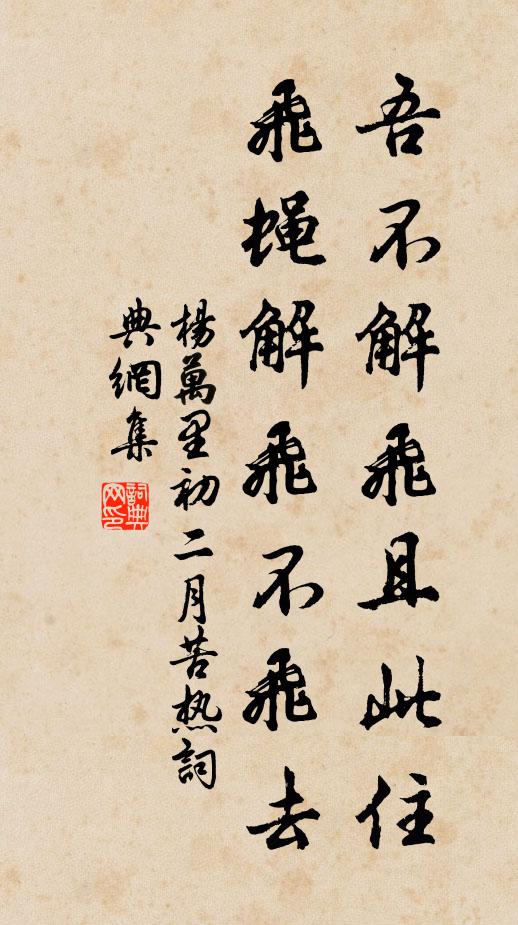 吾不解飛且此住
飛蝇解飛不飛去
楊萬里初二月苦热詞
典網集
詞典
网印